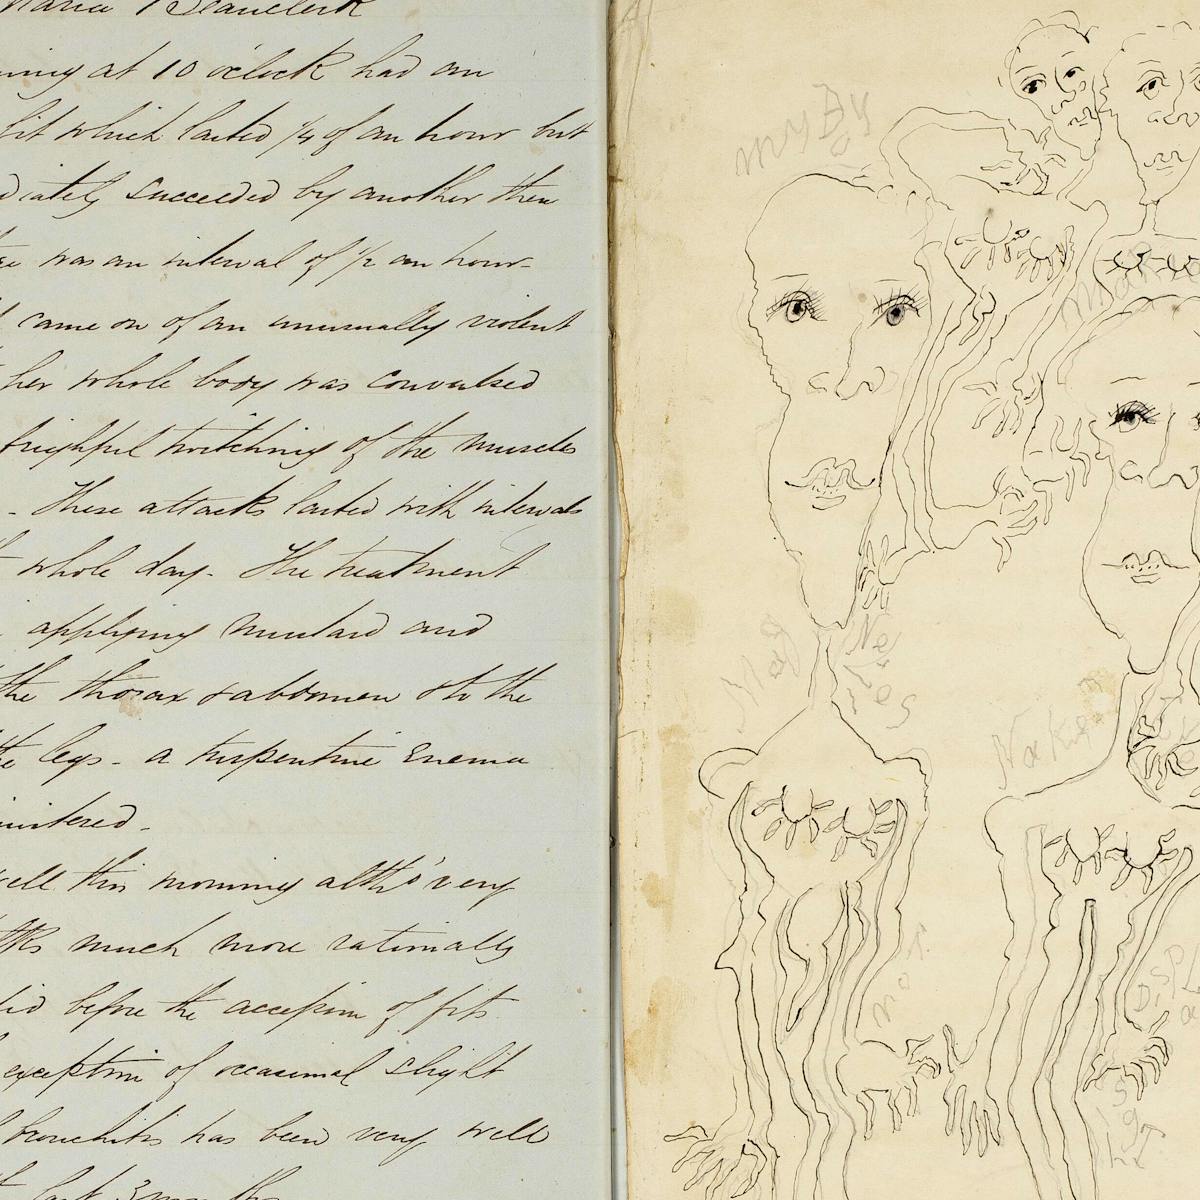 Maria Beauclerk
ning at 10 o'clock had an
fit which lasted 1/4 of an hour but
diately succeeded by another then
re was an interval of 1/2 an hour-
came on of an unusually violent
her whole body was convulsed
frightful twitching of the muscles
- These attacks lasted with intervals
whole day- The treatment
applying mustard and
the thorax & abdomen & to the
the legs- a turpentine Enema
nistered-
well this morning altho' very
lks much more rationally
did before the accession of fits
exception of occasional slight
bronchitis has been very well
last 3 months
my By
Mag
Ne
Les
Naked
not
DispL
a
is
Lt